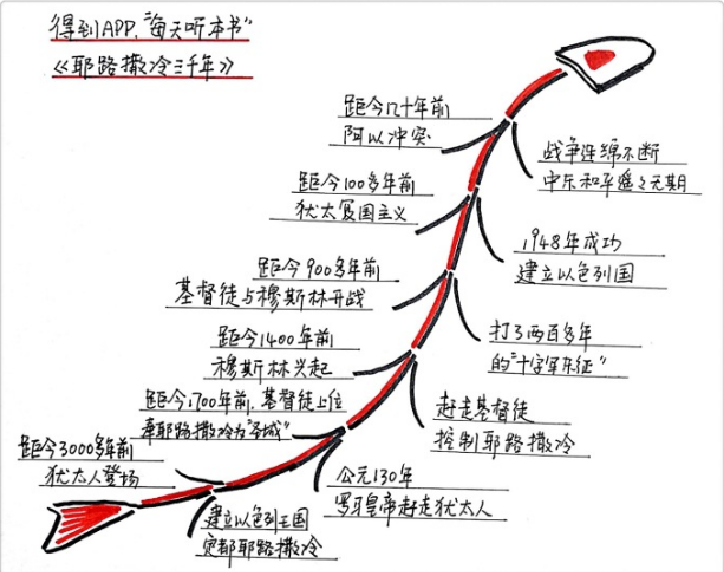 得到APP,"每天听本书"
《耶路撒冷三千年》
距今几十年前
阿以冲突
战争连绵不断
中东和平遥遥无期
距今100多年前
犹太复国主义
1948年成功
建立以色列国
距今900多年前
基督徒与穆斯林开战
打了两百多年
的"十字军东征"
距今1400年前
穆斯林兴起
赶走基督徒
控制耶路撒冷
距今1700年前,基督徒上位
奉耶路撒冷为"圣城"
公元130年
罗马皇帝赶走犹太人
距今3000多年前
犹太人登场
建立以色列王国
定都耶路撒冷